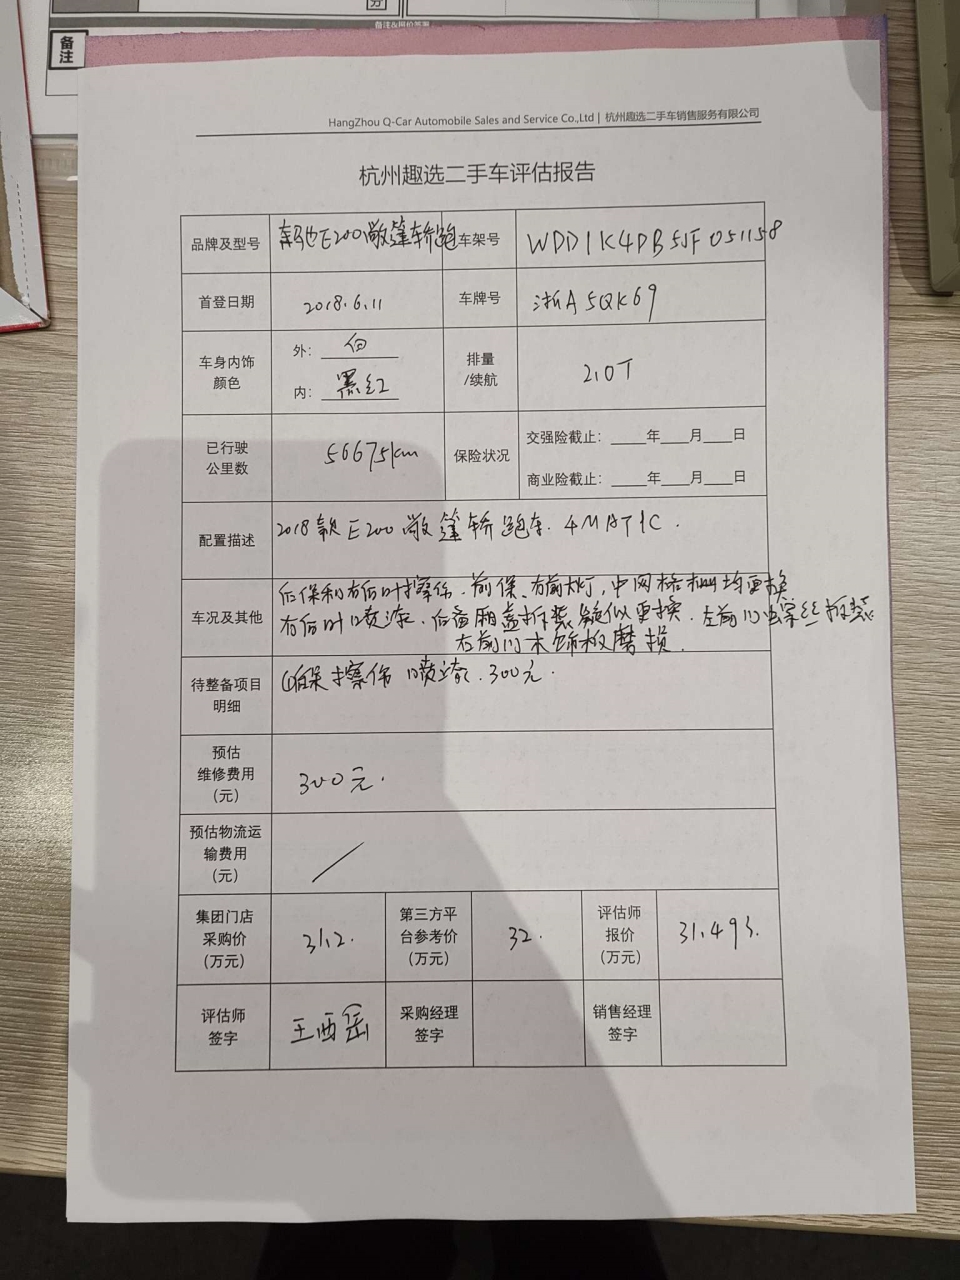 备注&报价答案
备注
HangZhou Q-Car Automobile Sales and Service Co.,Ltd | 杭州趣选二手车销售服务有限公司
杭州趣选二手车评估报告
品牌及型号 奔驰E200敞篷轿跑 车架号 WDD1K4DB5JF051158
首登日期 2018.6.11 车牌号 浙A5QK69
车身内饰颜色 外：白 内：黑红 排量/续航 2.0T
已行驶公里数 56675km 保险状况 交强险截止：____年___月___日
商业险截止：____年___月___日
配置描述 2018款E200敞篷轿跑车.4MATIC.
车况及其他 后保和右后叶擦伤.前保、右前大灯,中网格栅均更换
右后叶喷漆.后备厢盖拆装疑似更换.左前门螺丝拆装
右前门木饰板磨损.
待整备项目明细 ①后保擦伤喷漆.300元.
预估维修费用(元) 300元.
预估物流运输费用(元) /
集团门店采购价(万元) 31.2. 第三方平台参考价(万元) 32. 评估师报价(万元) 31.493.
评估师签字 王西 采购经理签字 销售经理签字